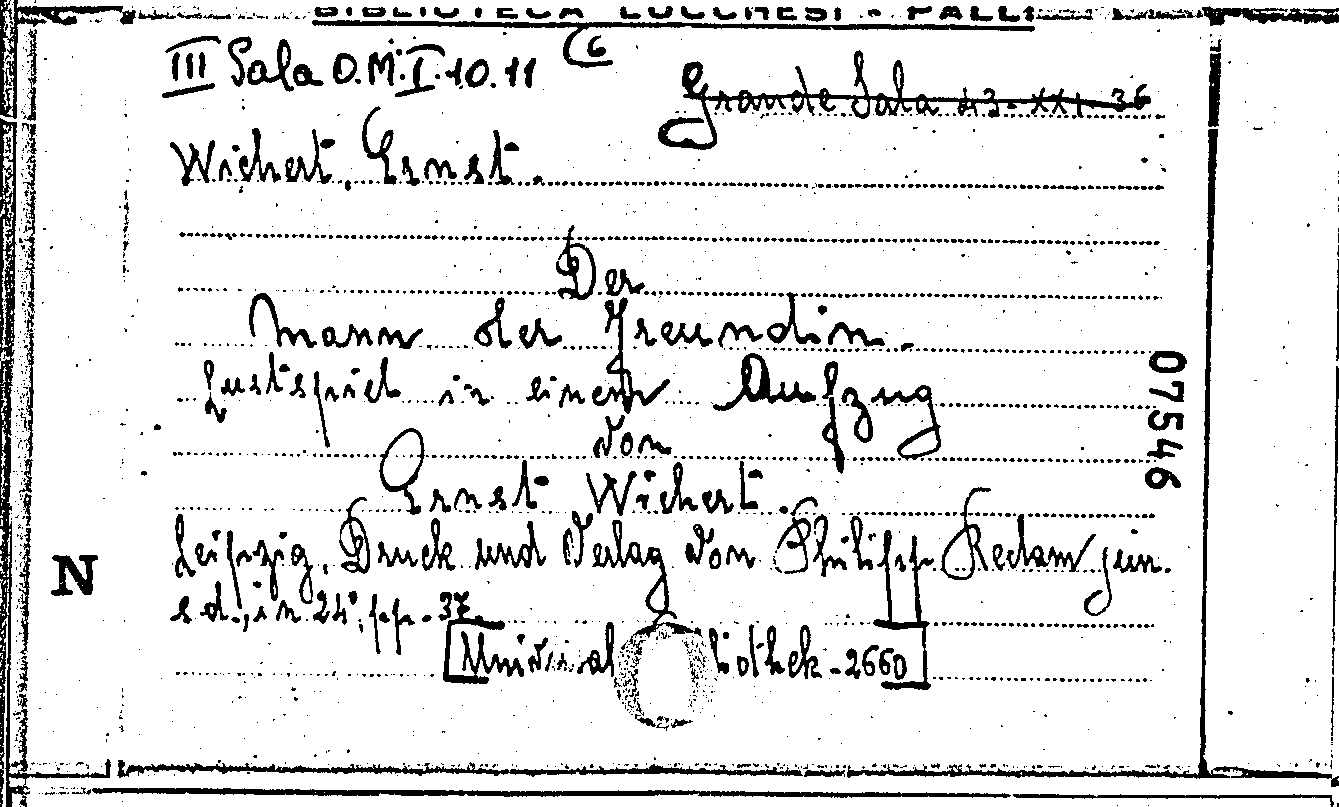 BIBLIOTECA LUCCHESI - PALLI
III Sala O.M.I.10.11 (6
Grande Sala 43-XXI-36
Wichert, Ernst.
Der
Mann der Freundin.
Lustspiel in einem Aufzug
von
Ernst Wichert.
Leipzig, Druck und Verlag von Philipp Reclam jun.
s.d., in 24°, pp. 37.
[Universal liothek - 2660]
07546
N